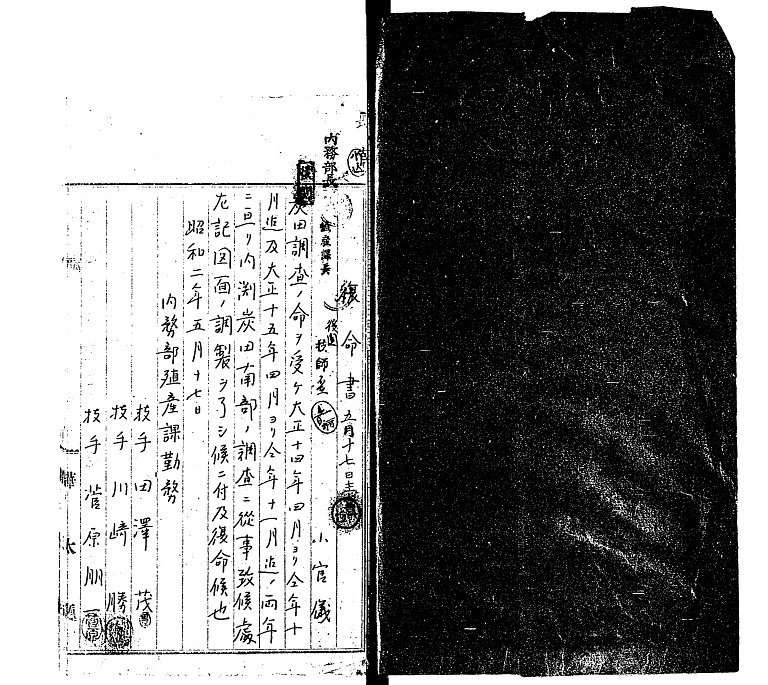 内務部長
復命書 五月十七日
殖産課長
技師
小官儀
炭田調査ノ命ヲ受ケ大正十四年四月ヨリ仝年十
月迠及大正十五年四月ヨリ仝年十一月迠ノ両年
ニ亘リ内渕炭田南部ノ調査ニ從事致候處
左記図面ノ調製ヲ了シ候ニ付及復命候也
昭和二年五月十七日
内務部殖産課勤務
技手 田澤 茂
技手 川﨑 勝
技手 菅原朋一
樺太